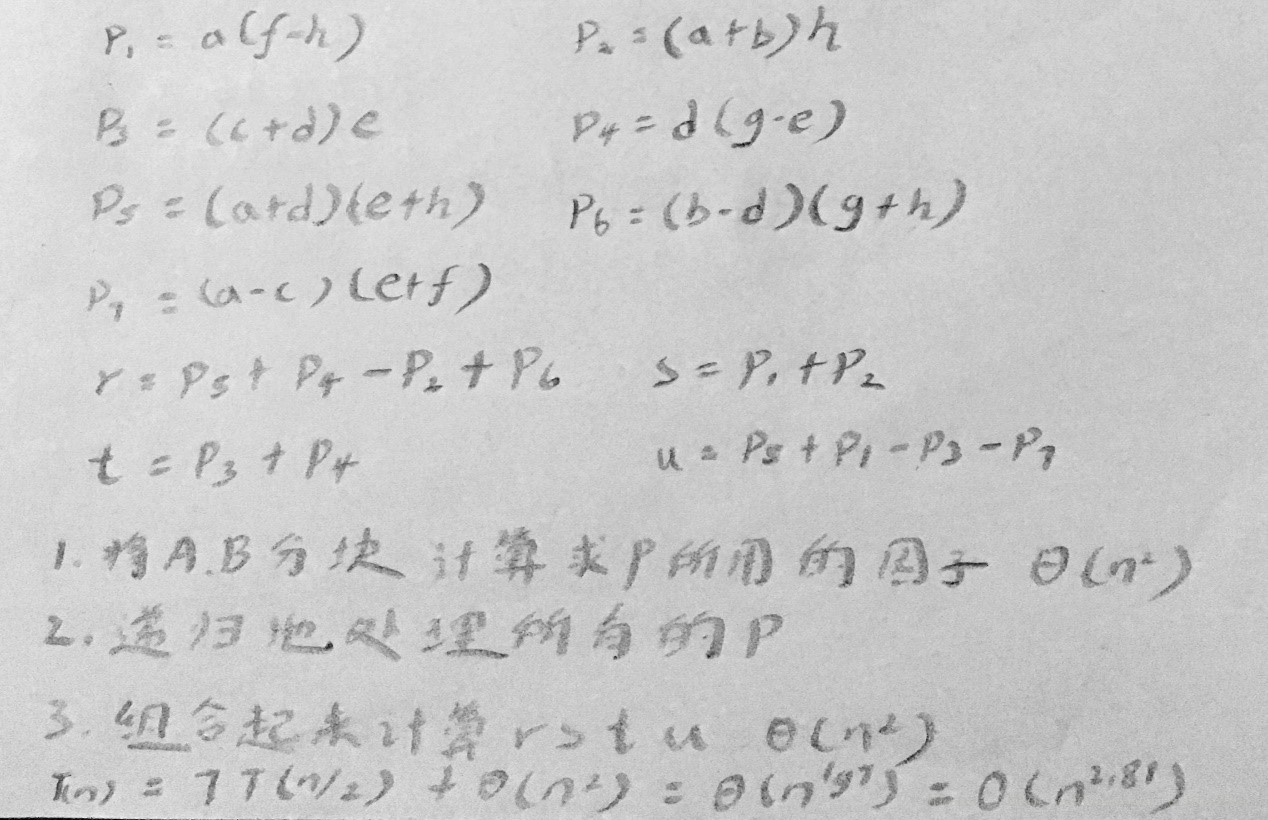 P₁ = a(f-h) P₂ = (a+b)h
P₃ = (c+d)e P₄ = d(g-e)
P₅ = (a+d)(e+h) P₆ = (b-d)(g+h)
P₇ = (a-c)(e+f)
r = P₅ + P₄ - P₂ + P₆ s = P₁ + P₂
t = P₃ + P₄ u = P₅ + P₁ - P₃ - P₇
1. 将A.B分块 计算求P所用的因子 Θ(n²)
2. 递归地处理所有的P
3. 组合起来计算 r s t u Θ(n²)
T(n) = 7T(n/2) + Θ(n²) = Θ(n^lg7) = O(n^2.81)